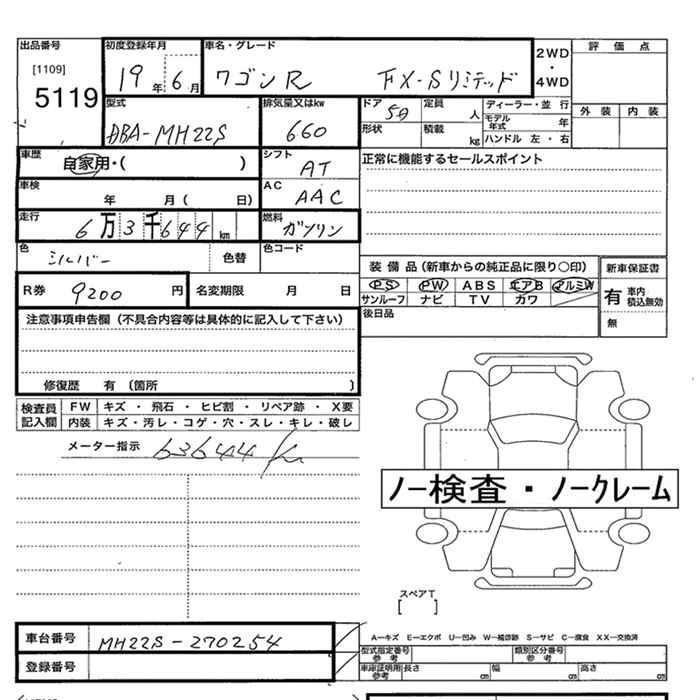 出品番号
[1109]
5119
初度登録年月
19年6月
車名・グレード
ワゴンR FX-Sリミテッド
2WD
・
4WD
評価点
外装 内装
型式
DBA-MH22S
排気量又はkw
660
ドア
5D
定員
人
形状
積載
kg
ディーラー・並行
モデル年式 年
ハンドル 左・右
車歴
自家用・( )
シフト
AT
正常に機能するセールスポイント
車検
年 月( 日)
AC
AAC
走行
6万3千644km
燃料
ガソリン
色
シルバー
色替
色コード
R券
9200円
名変期限 月 日
装備品(新車からの純正品に限り○印)
PS PW ABS エアB アルミW
サンルーフ ナビ TV カワ
後日品
新車保証書
有 車内積込無効
無
注意事項申告欄(不具合内容等は具体的に記入して下さい)
修復歴 有(箇所 )
検査員記入欄
FW キズ・飛石・ヒビ割・リペア跡・X要
内装 キズ・汚レ・コゲ・穴・スレ・キレ・破レ
メーター指示 63644 K
ノー検査・ノークレーム
スペアT
[ ]
車台番号 MH22S-270254
登録番号
A―キズ E―エクボ U―凹み W―補修跡 S―サビ C―腐食 XX―交換済
型式指定番号参考
類別区分番号参考
車庫証明用参考 長さ cm 幅 cm 高さ cm